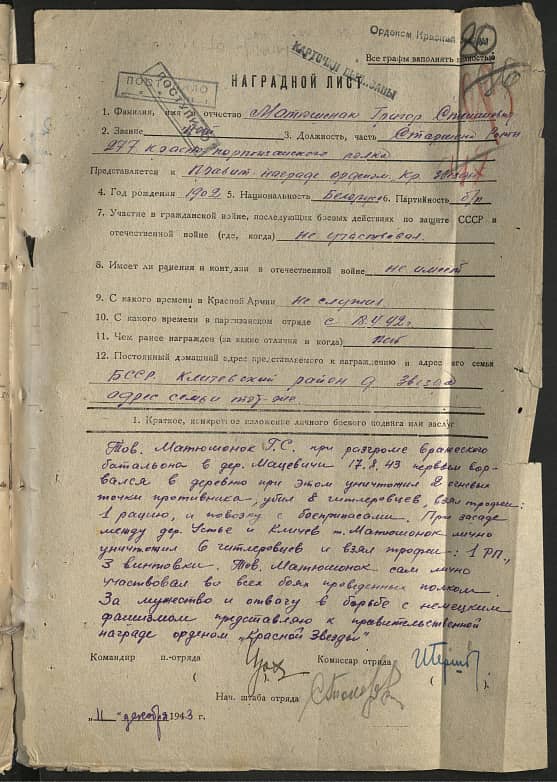 Орденом Красной
80
КАРТОЧКИ
Все графы заполнять полностью
ПОСТУПИЛО
НАГРАДНОЙ ЛИСТ
1. Фамилия, имя и отчество Матюшонак Григор
2. Звание 3. Должность, часть Старшина Роты
277 краснопартизанского полка
Представляется к Правит-награде орденом. Кр. Звезда
4. Год рождения 1902 5. Национальность Белорус 6. Партийность б/п
7. Участие в гражданской войне, последующих боевых действиях по защите СССР и
отечественной войне (где, когда) не участвовал.
8. Имеет ли ранения и контузии в отечественной войне не имеет
9. С какого времени в Красной Армии не служил
10. С какого времени в партизанском отряде с 42г.
11. Чем ранее награжден (за какие отличия и когда) нет
12. Постоянный домашний адрес представляемого к награждению и адрес его семьи
БССР. Кличевский район д.
адрес семьи тот-же.
1. Краткое, конкретное изложение личного боевого подвига или заслуг
Тов. Матюшонок Г.С. при разгроме вражеского
батальона в дер. Мацевичи 17.8.43 первым вор-
вался в деревню при этом уничтожил 2 огневые
точки противника, убил 8 гитлеровцев, взял трофеи:
1 рацию, и повозку с боеприпасами. При засаде
между дер. Устье и Кличев т. Матюшонок лично
уничтожил 6 гитлеровцев и взял трофеи: 1 РП.,
3 винтовки. Тов. Матюшонок сам лично
участвовал во всех боях проведенных полком.
За мужество и отвагу в борьбе с немецким
фашизмом представляю к правительственной
награде орденом „Красной Звезды"
Командир п.-отряда Комиссар отряда
Нач. штаба отряда
„11" декабря 1943 г.